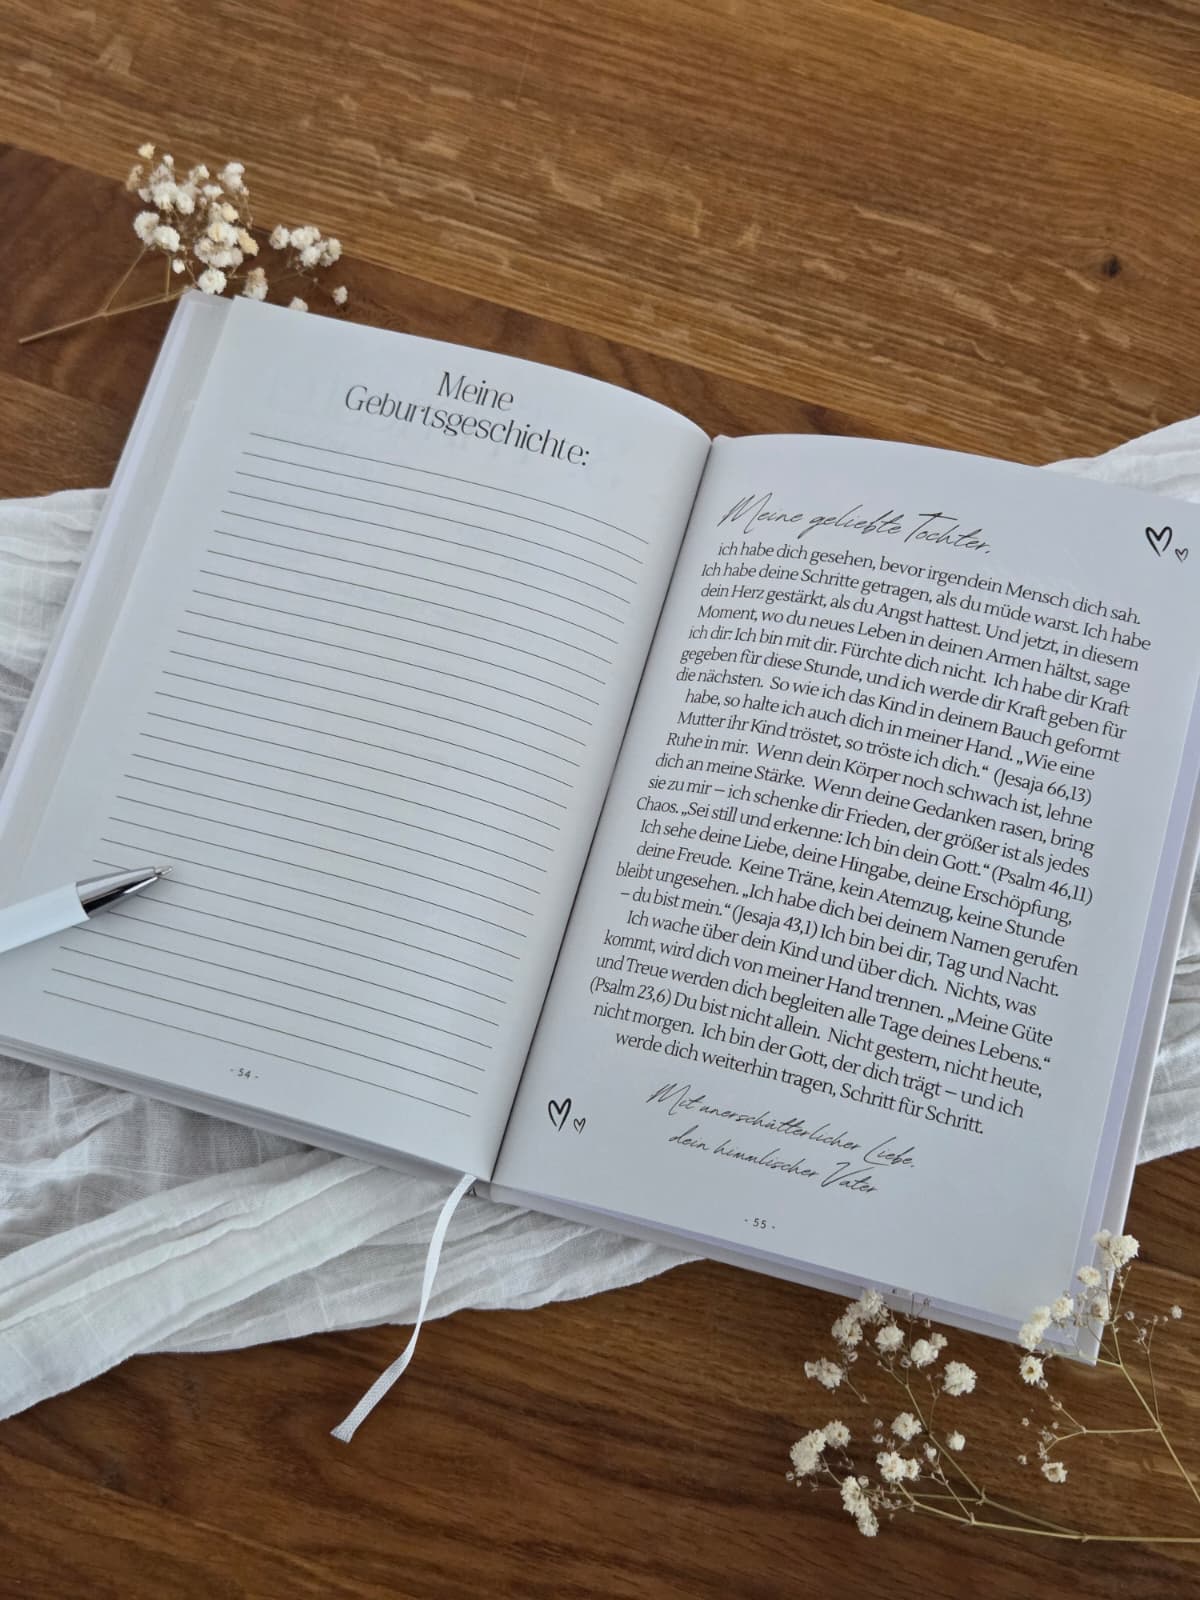 Meine
Geburtsgeschichte:
- 54 -
Meine geliebte Tochter,
ich habe dich gesehen, bevor irgendein Mensch dich sah.
Ich habe deine Schritte getragen, als du müde warst. Ich habe
dein Herz gestärkt, als du Angst hattest. Und jetzt, in diesem
Moment, wo du neues Leben in deinen Armen hältst, sage
ich dir: Ich bin mit dir. Fürchte dich nicht. Ich habe dir Kraft
gegeben für diese Stunde, und ich werde dir Kraft geben für
die nächsten. So wie ich das Kind in deinem Bauch geformt
habe, so halte ich auch dich in meiner Hand. „Wie eine
Mutter ihr Kind tröstet, so tröste ich dich.“ (Jesaja 66,13)
Ruhe in mir. Wenn dein Körper noch schwach ist, lehne
dich an meine Stärke. Wenn deine Gedanken rasen, bring
sie zu mir – ich schenke dir Frieden, der größer ist als jedes
Chaos. „Sei still und erkenne: Ich bin dein Gott.“ (Psalm 46,11)
Ich sehe deine Liebe, deine Hingabe, deine Erschöpfung,
deine Freude. Keine Träne, kein Atemzug, keine Stunde
bleibt ungesehen. „Ich habe dich bei deinem Namen gerufen
– du bist mein.“ (Jesaja 43,1) Ich bin bei dir, Tag und Nacht.
Ich wache über dein Kind und über dich. Nichts, was
kommt, wird dich von meiner Hand trennen. „Meine Güte
und Treue werden dich begleiten alle Tage deines Lebens.“
(Psalm 23,6) Du bist nicht allein. Nicht gestern, nicht heute,
nicht morgen. Ich bin der Gott, der dich trägt – und ich
werde dich weiterhin tragen, Schritt für Schritt.
Mit unerschütterlicher Liebe,
dein himmlischer Vater
- 55 -